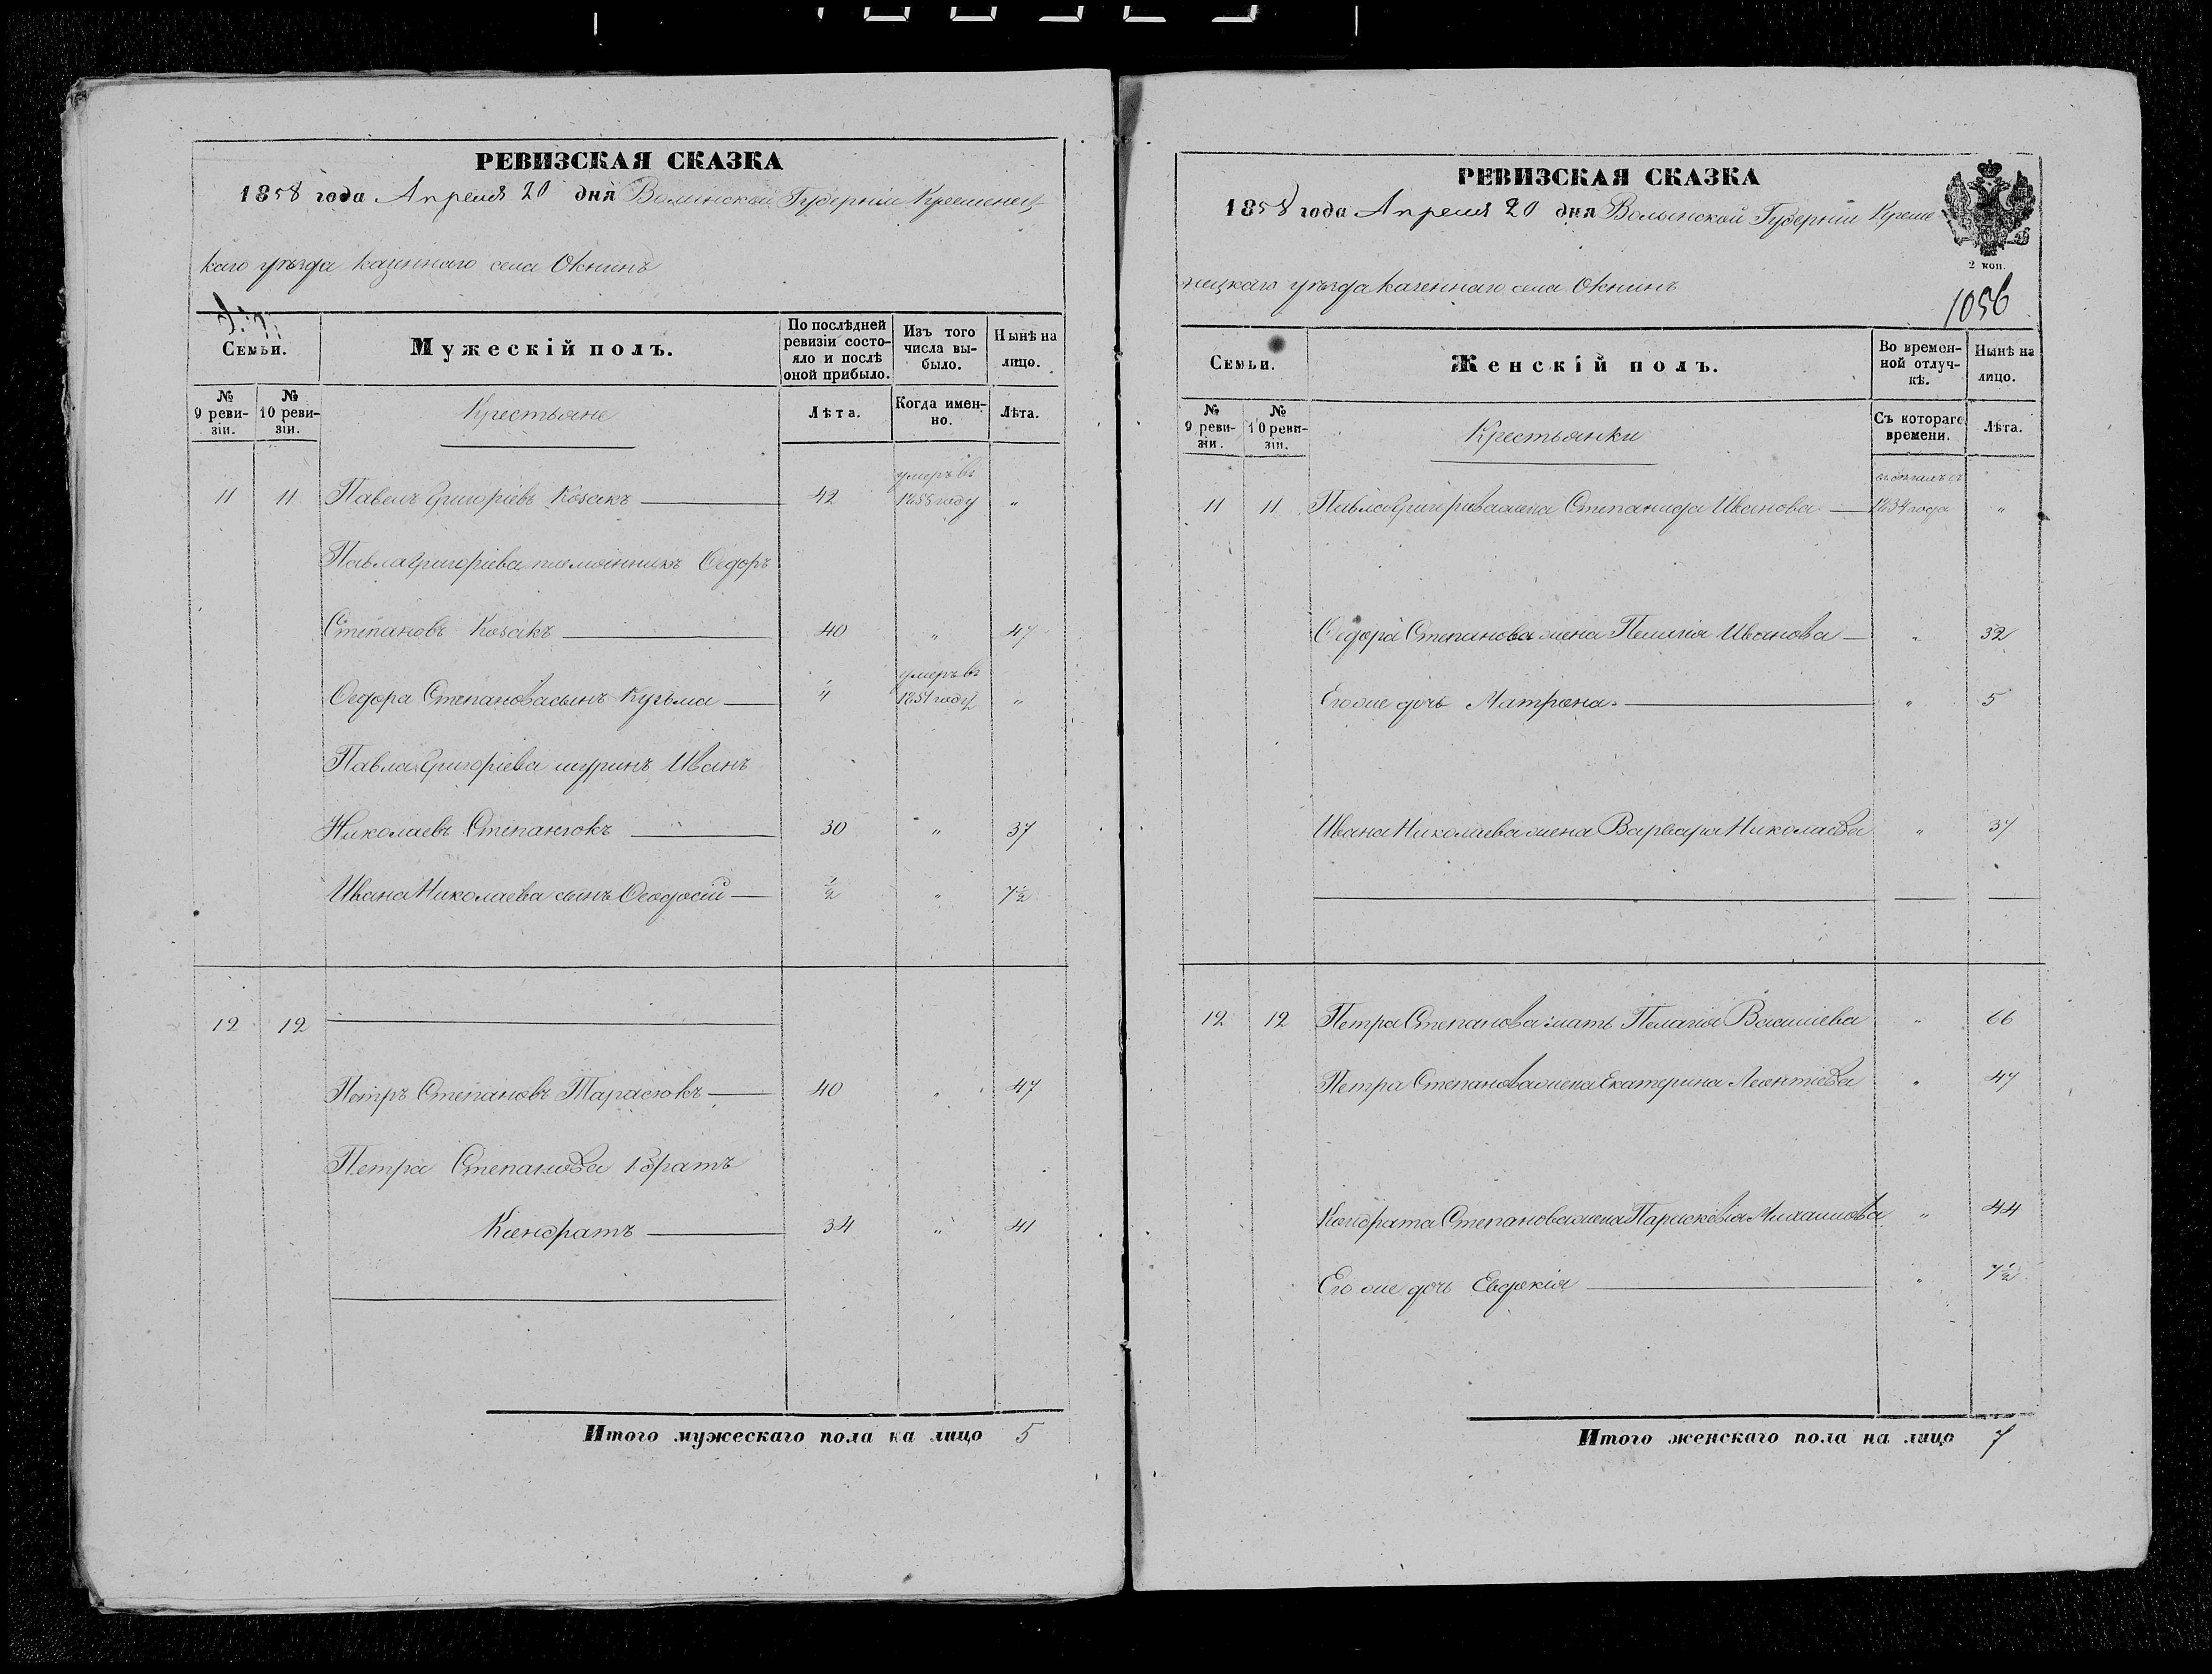 РЕВИЗСКАЯ СКАЗКА
1858 года Апреля 20 дня Волынской Губерніи Кременец
каго уѣзда казеннаго села Окнинъ
Семьи.
Мужескій полъ.
По послѣдней ревизіи состояло и послѣ оной прибыло.
Изъ того числа выбыло.
Нынѣ на лицо.
№ 9 ревизіи.
№ 10 ревизіи.
Крестьяне
Лѣта.
Когда именно.
Лѣта.
умеръ въ
11 11 Павелъ Григоріевъ Козакъ 42 1858 году "
Павла Григоріева племянникъ Ѳедоръ
Степановъ Козакъ 40 " 47
умеръ въ
Ѳедора Степанова сынъ Кузьма 4 1851 году "
Павла Григоріева шуринъ Иванъ
Николаевъ Степанюкъ 30 " 37
Ивана Николаева сынъ Ѳеодосій ½ " 7½
12 12
Петръ Степановъ Тарасюкъ 40 " 47
Петра Степанова Братъ
Кондратъ 34 " 41
Итого мужескаго пола на лицо 5
РЕВИЗСКАЯ СКАЗКА
1858 года Апреля 20 дня Волынской Губерніи Креме
нецкаго уѣзда казеннаго села Окнинъ
2 коп.
1056
Семьи.
Женскій полъ.
Во временной отлучкѣ.
Нынѣ на лицо.
№ 9 ревизіи.
№ 10 ревизіи.
Крестьянки
Съ котораго времени.
Лѣта.
11 11 Павла Григоріева жена Степанида Иванова года "
Ѳедора Степанова жена Пелагія Иванова " 32
Его же дочь Матрона " 5
Ивана Николаева жена Варвара Николаева " 37
12 12 Петра Степанова мать Пелагія Василіева " 66
Петра Степанова жена Екатерина Леонтіева " 47
Кондрата Степанова жена Парасковія Михаилова " 44
Его же дочь Евдокія " 7½
Итого женскаго пола на лицо 7